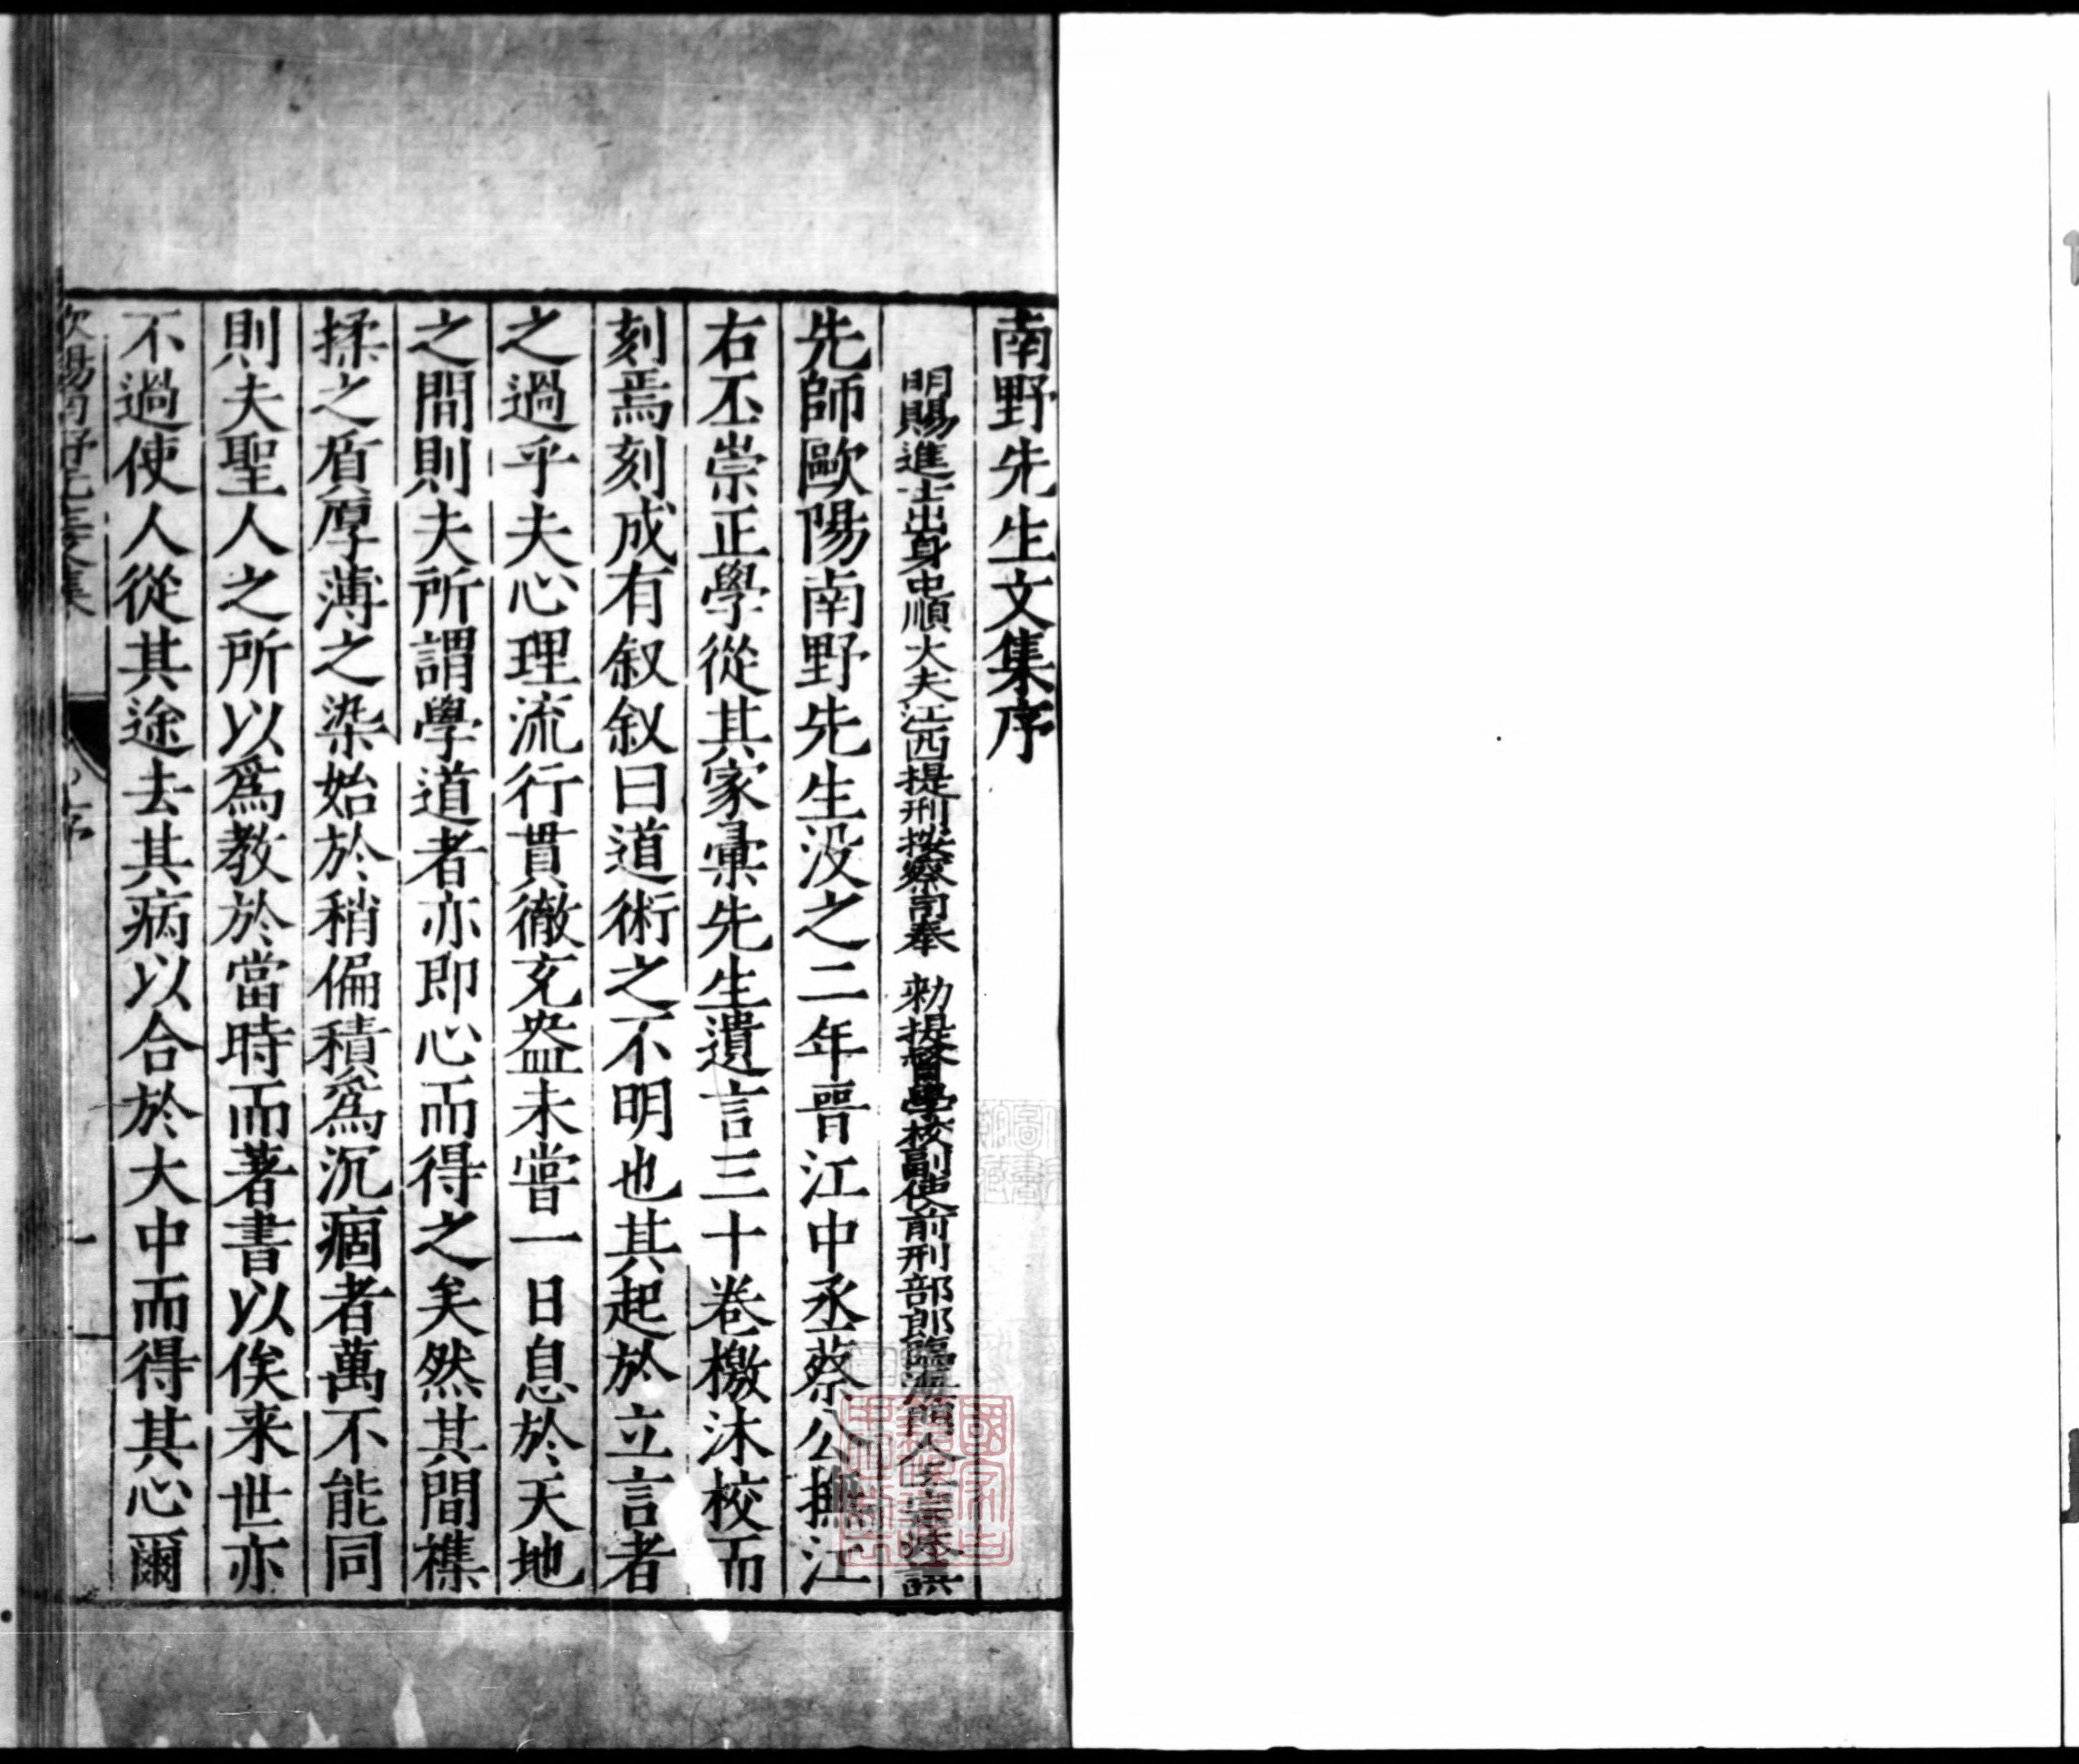 南野先生文集序
明賜進士出身中順大夫江西提刑按察司奉 勑提督學校副使前刑部郎臨海門人王宗沐撰
先師歐陽南野先生没之二年晉江中丞蔡公撫江
右丕崇正學從其家彙先生遺言三十卷檄沐校而
刻焉刻成有叙叙曰道術之不明也其起於立言者
之過乎夫心理流行貫徹充盎未嘗一日息於天地
之間則夫所謂學道者亦即心而得之矣然其間襍
揉之質厚薄之染始於稍偏積爲沉痼者萬不能同
則夫聖人之所以爲教於當時而著書以俟来世亦
不過使人從其途去其病以合於大中而得其心爾
歐陽南野先生文集
序
一